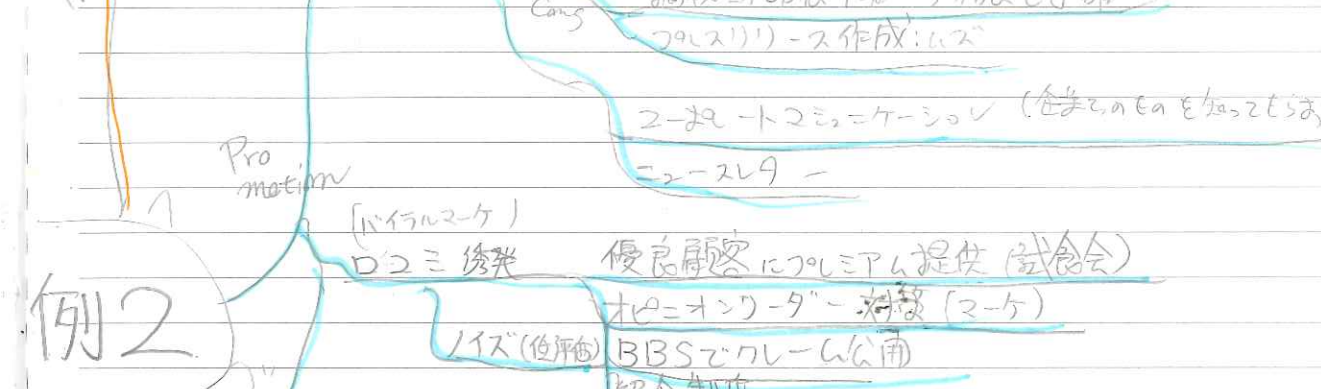 プレスリリース作成:ムズ
コーポレートコミュニケーション (企業そのものを知ってもらお
ニュースレター
Pro
motion
(バイラルマーケ)
口コミ誘発
優良顧客にプレミアム提供(試食会)
オピニオンリーダー (マーケ)
ノイズ(低評価)
BBSでクレーム公開
例2